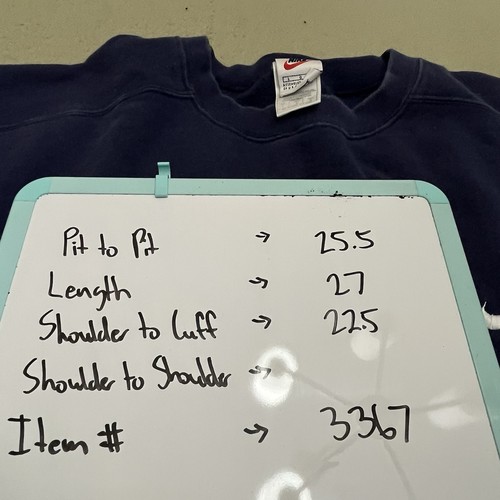 NIKE
Pit to Pit → 25.5
Length → 27
Shoulder to Cuff → 22.5
Shoulder to Shoulder →
Item # → 3367